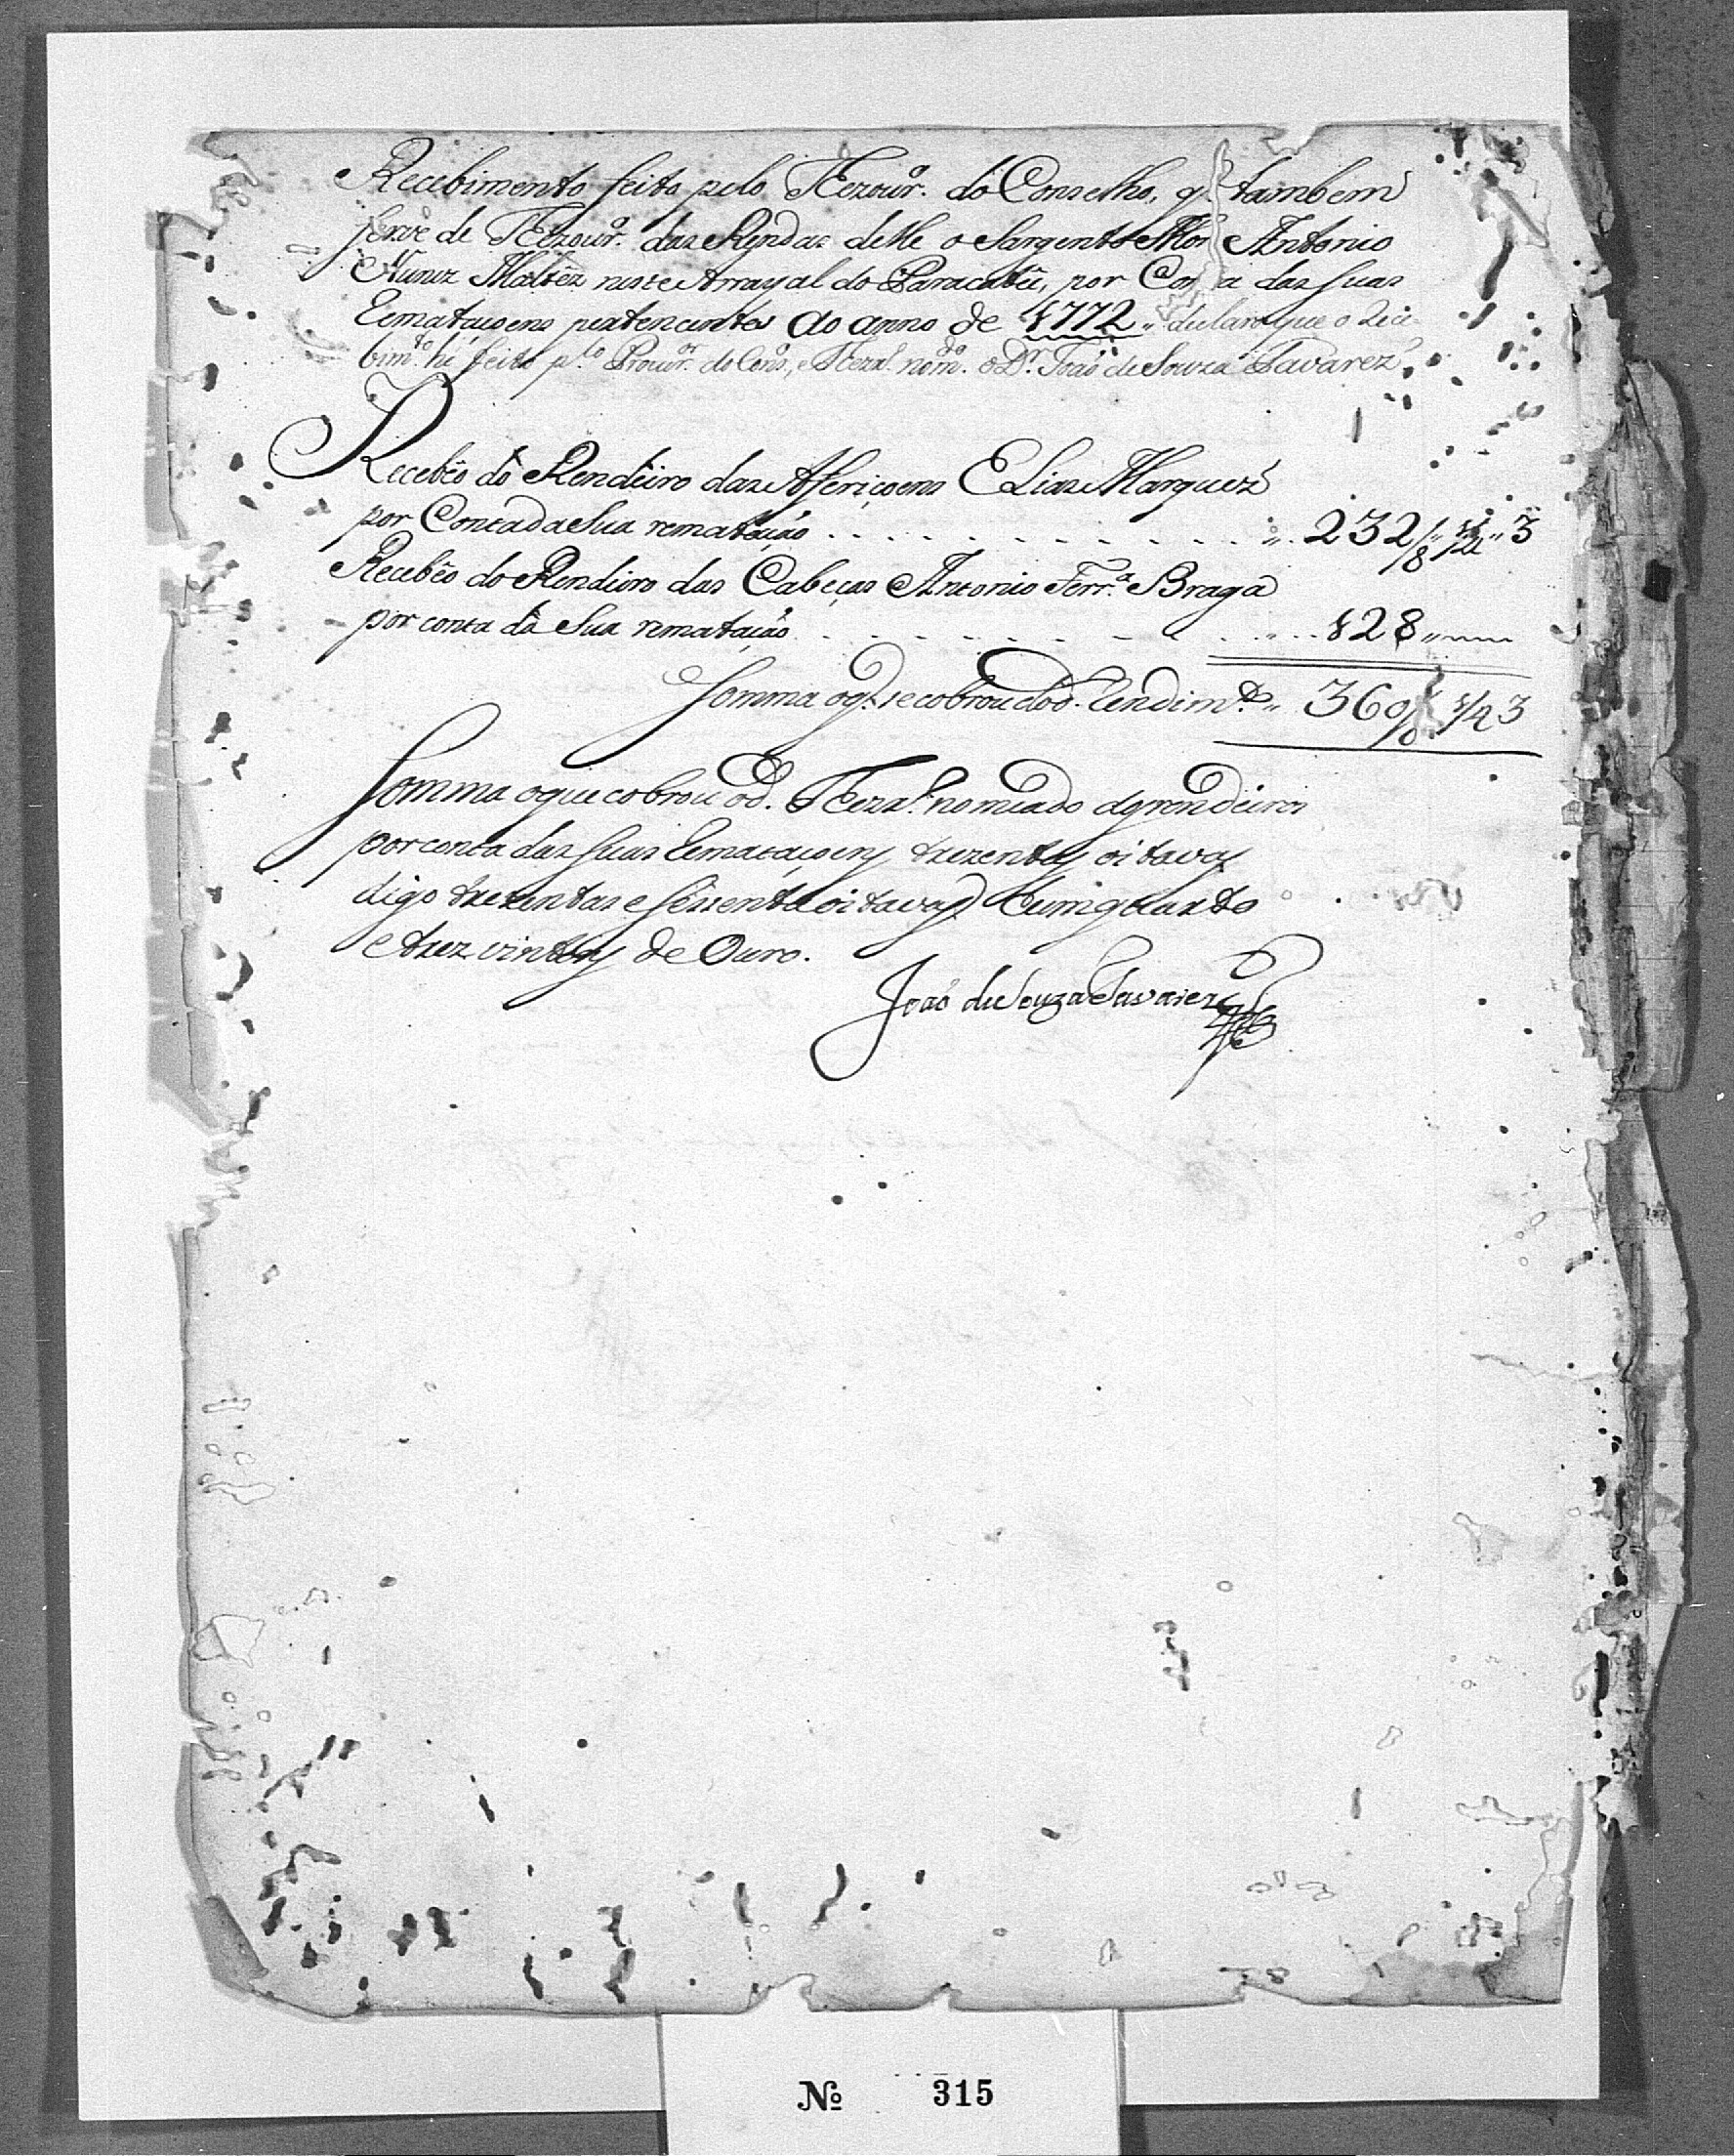 Recebimento feito pelo Thezour.º do Conselho, q. tambem
serve de Thezour.º das Rendas delle o Sargento Mor Antonio
Nunez Maltêz neste Arrayal do Paracatû, por Con a das suas
Rematasoens pertencentes ao anno de 1772,, declaro que o Rece-
bim.to hé feito p.lo Procur.or do Cons.º, e Thezr.º nom.do o D.r João de Souza Tavarez
Recebêo do Rendeiro das Afericoens Elias Marquez
por Conta da Sua rematação . . . . . . . . . . . . 232/8,, 1/4,, 3
Recebêo do Rendeiro das Cabeças Antonio Ferr.ª Braga
por conta da Sua rematação . . . . . . . . . . . . 128,,
Somma o q. se cobrou do d. Rendim.to ,, 360/8 1/4 3
Somma o que cobrou o d. Thezr.º nomiado dos rendeiros
por conta das suas Rematacoens trezentas oitavas
digo trezentas e sessenta oitavas e hum quarto
e trez vintens de Ouro.
João de Souza Tavarez
№ 315